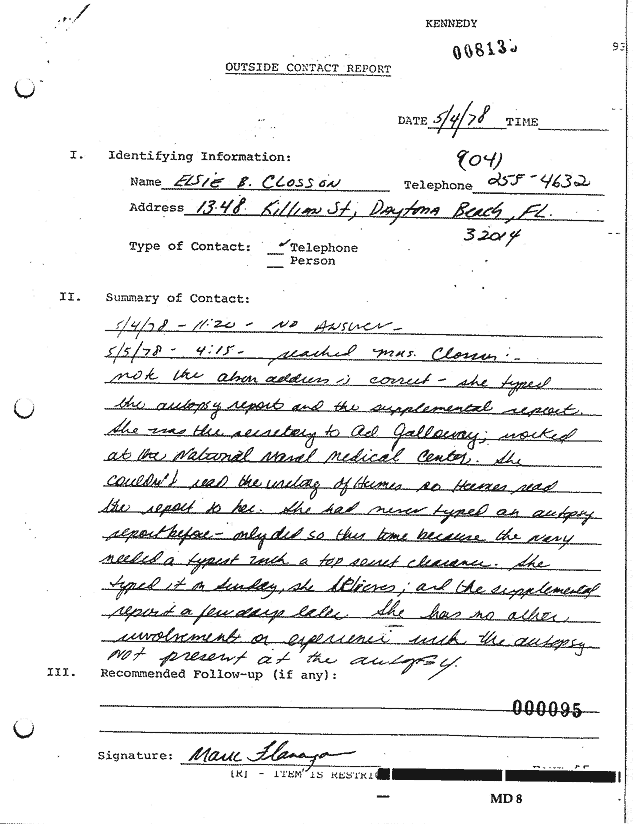 KENNEDY
00813
93
OUTSIDE CONTACT REPORT
DATE 5/4/78 TIME
I. Identifying Information:
(904)
Name ELSIE B. CLOSSON Telephone 255-4632
Address 1348 Killian St, Daytona Beach, FL.
32014
Type of Contact: ✓ Telephone
Person
II. Summary of Contact:
5/4/78 - 11:20 - NO ANSWER -
5/5/78 - 4:15 - reached Mrs. Closson -
note the above address is correct - she typed
the autopsy report and the supplemental report.
She was the secretary to Ad Galloway; worked
at the National Naval Medical Center. She
couldn't read the writing of Humes so Humes read
the report to her. She had never typed an autopsy
report before - only did so this time because the navy
needed a typist with a top secret clearance. She
typed it on Sunday, she believes; and the supplemental
report a few days later. She has no other
involvement or experience with the autopsy.
Not present at the autopsy.
III. Recommended Follow-up (if any):
000095
Signature: Mark Flanagan
[R] - ITEM IS RESTRIC
MD 8